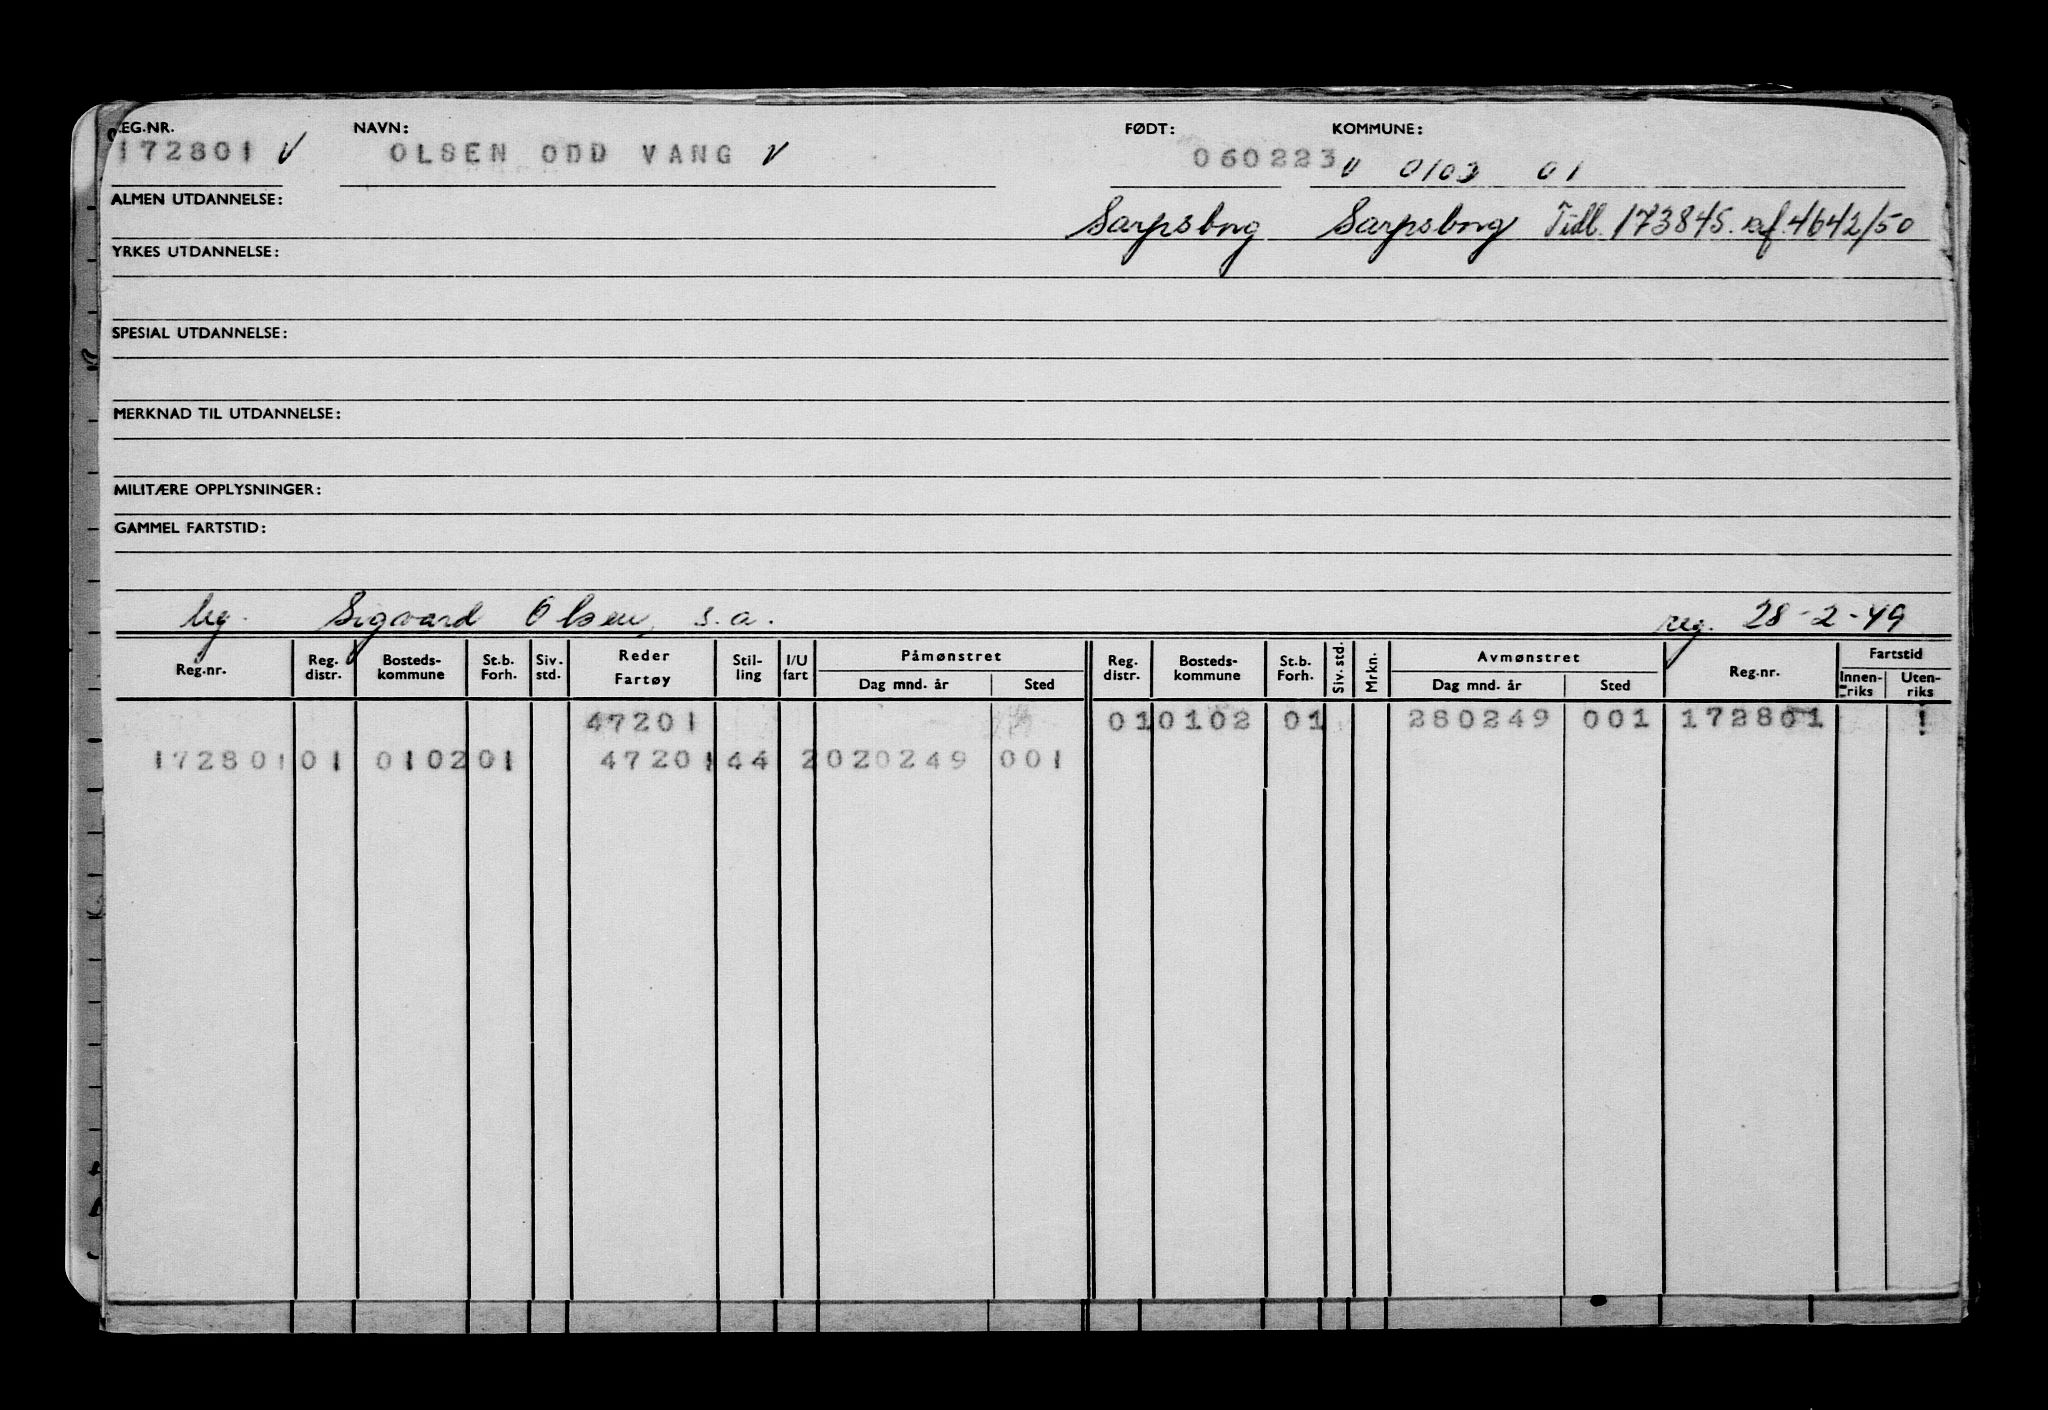 REG.NR. NAVN: FØDT: KOMMUNE:
172801 V OLSEN ODD VANG V 060223 V 0103 01
ALMEN UTDANNELSE: Sarpsborg Sarpsborg Tidl. 173845. af. 4642/50
YRKES UTDANNELSE:
SPESIAL UTDANNELSE:
MERKNAD TIL UTDANNELSE:
MILITÆRE OPPLYSNINGER:
GAMMEL FARTSTID:
Sigvard Olsen, s.a. reg. 28-2-49
Reg.nr. Reg. distr. Bosteds- kommune St.b. Forh. Siv. std. Reder Fartøy Stil- ling I/U fart Påmønstret Dag mnd. år Sted Reg. distr. Bosteds- kommune St.b. Forh. Siv. std. Mrkn. Avmønstret Dag mnd. år Sted Reg.nr. Fartstid Innen- riks Uten- riks
47201 01 0102 01 280249 001 172801 1
172801 01 0102 01 47201 44 2 020249 001